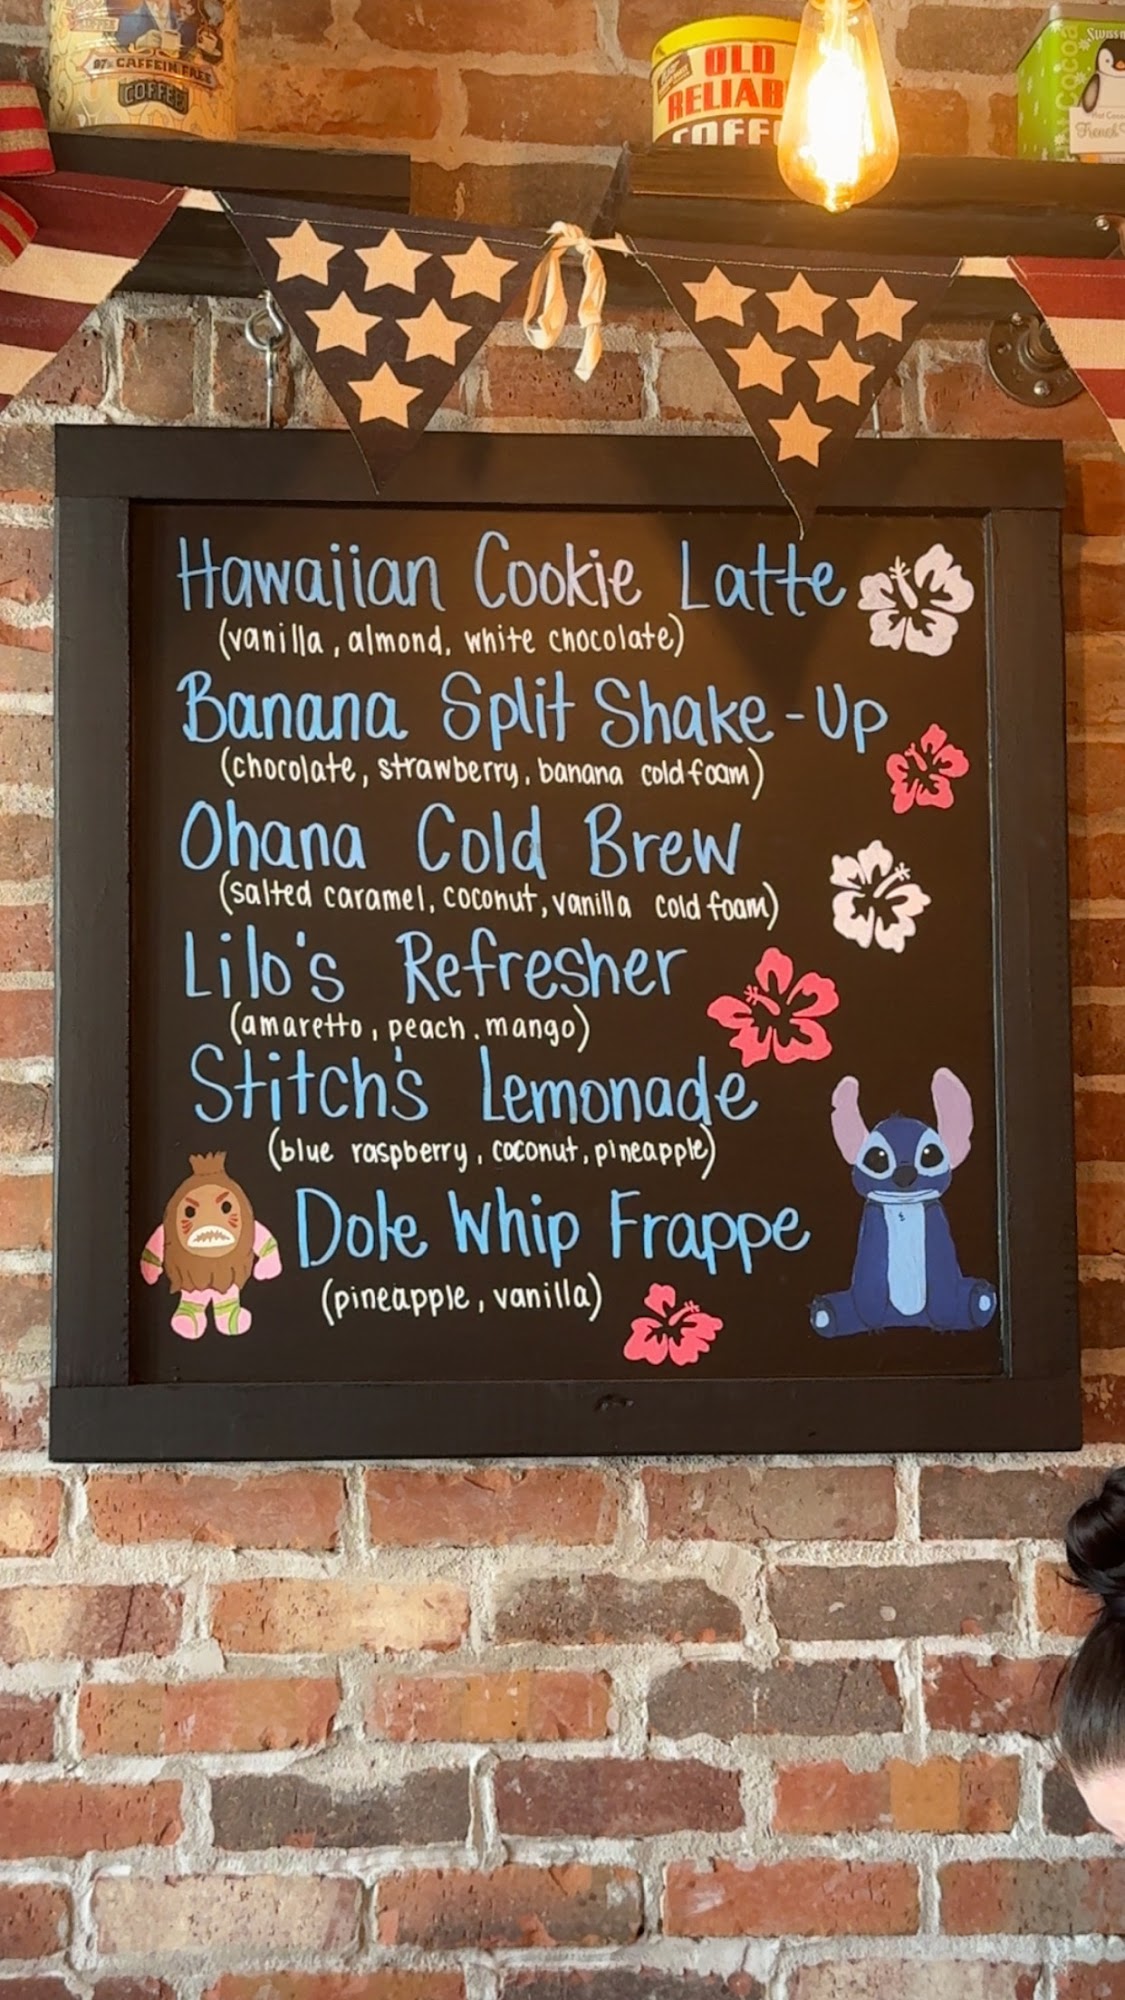 97% CAFFEIN FREE
COFFEE
OLD
RELIAB
COFF
Cocoa
Hawaiian Cookie Latte
(vanilla, almond, white chocolate)
Banana Split Shake-Up
(chocolate, strawberry, banana cold foam)
Ohana Cold Brew
(salted caramel, coconut, vanilla cold foam)
Lilo's Refresher
(amaretto, peach, mango)
Stitch's Lemonade
(blue raspberry, coconut, pineapple)
Dole Whip Frappe
(pineapple, vanilla)